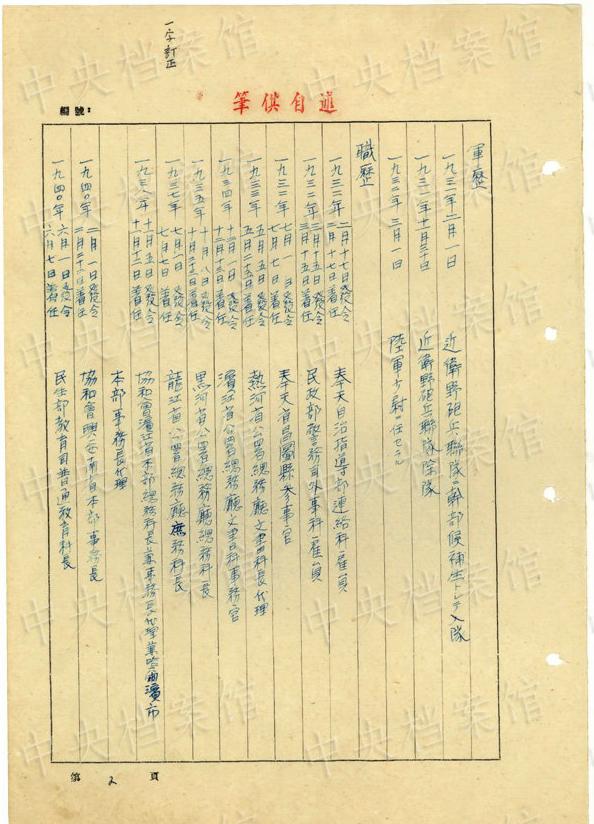 一字訂正
筆供自述
編號:
軍歷
一九三一年二月一日 近衛野砲兵聯隊ニ幹部候補生トシテ入隊
一九三一年十一月三十日 近衛野砲兵聯隊除隊
一九三二年三月一日 陸軍少尉ニ任セラル
職歷
一九三二年 二月十七日 奉天自治指導部連絡科雇員
一九三二年 三月十五日發令 三月十五日着任 民政部警務司外事科雇員
一九三二年 七月一日發令 七月七日着任 奉天省昌圖縣參事官
一九三三年 五月五日發令 五月二十五日着任 熱河省公署總務廳文書科長代理
一九三四年 十二月一日發令 十二月十三日着任 濱江省公署總務廳文書科事務官
一九三五年 十一月八日發令 十一月二十三日着任 黑河省公署總務廳總務科長
一九三七年 七月一日發令 七月七日着任 龍江省公署總務廳庶務科長
一九三八年 十一月五日發令 十一月十二日着任 協和會濱江省本部總務科長兼事務長代理兼哈爾濱市
本部事務長代理
一九四〇年 二月一日發令 二月二十六日着任 協和會興安南省本部事務長
一九四〇年 六月一日發令 六月七日着任 民生部教育司普通教育科長
第 2 頁
中央档案馆